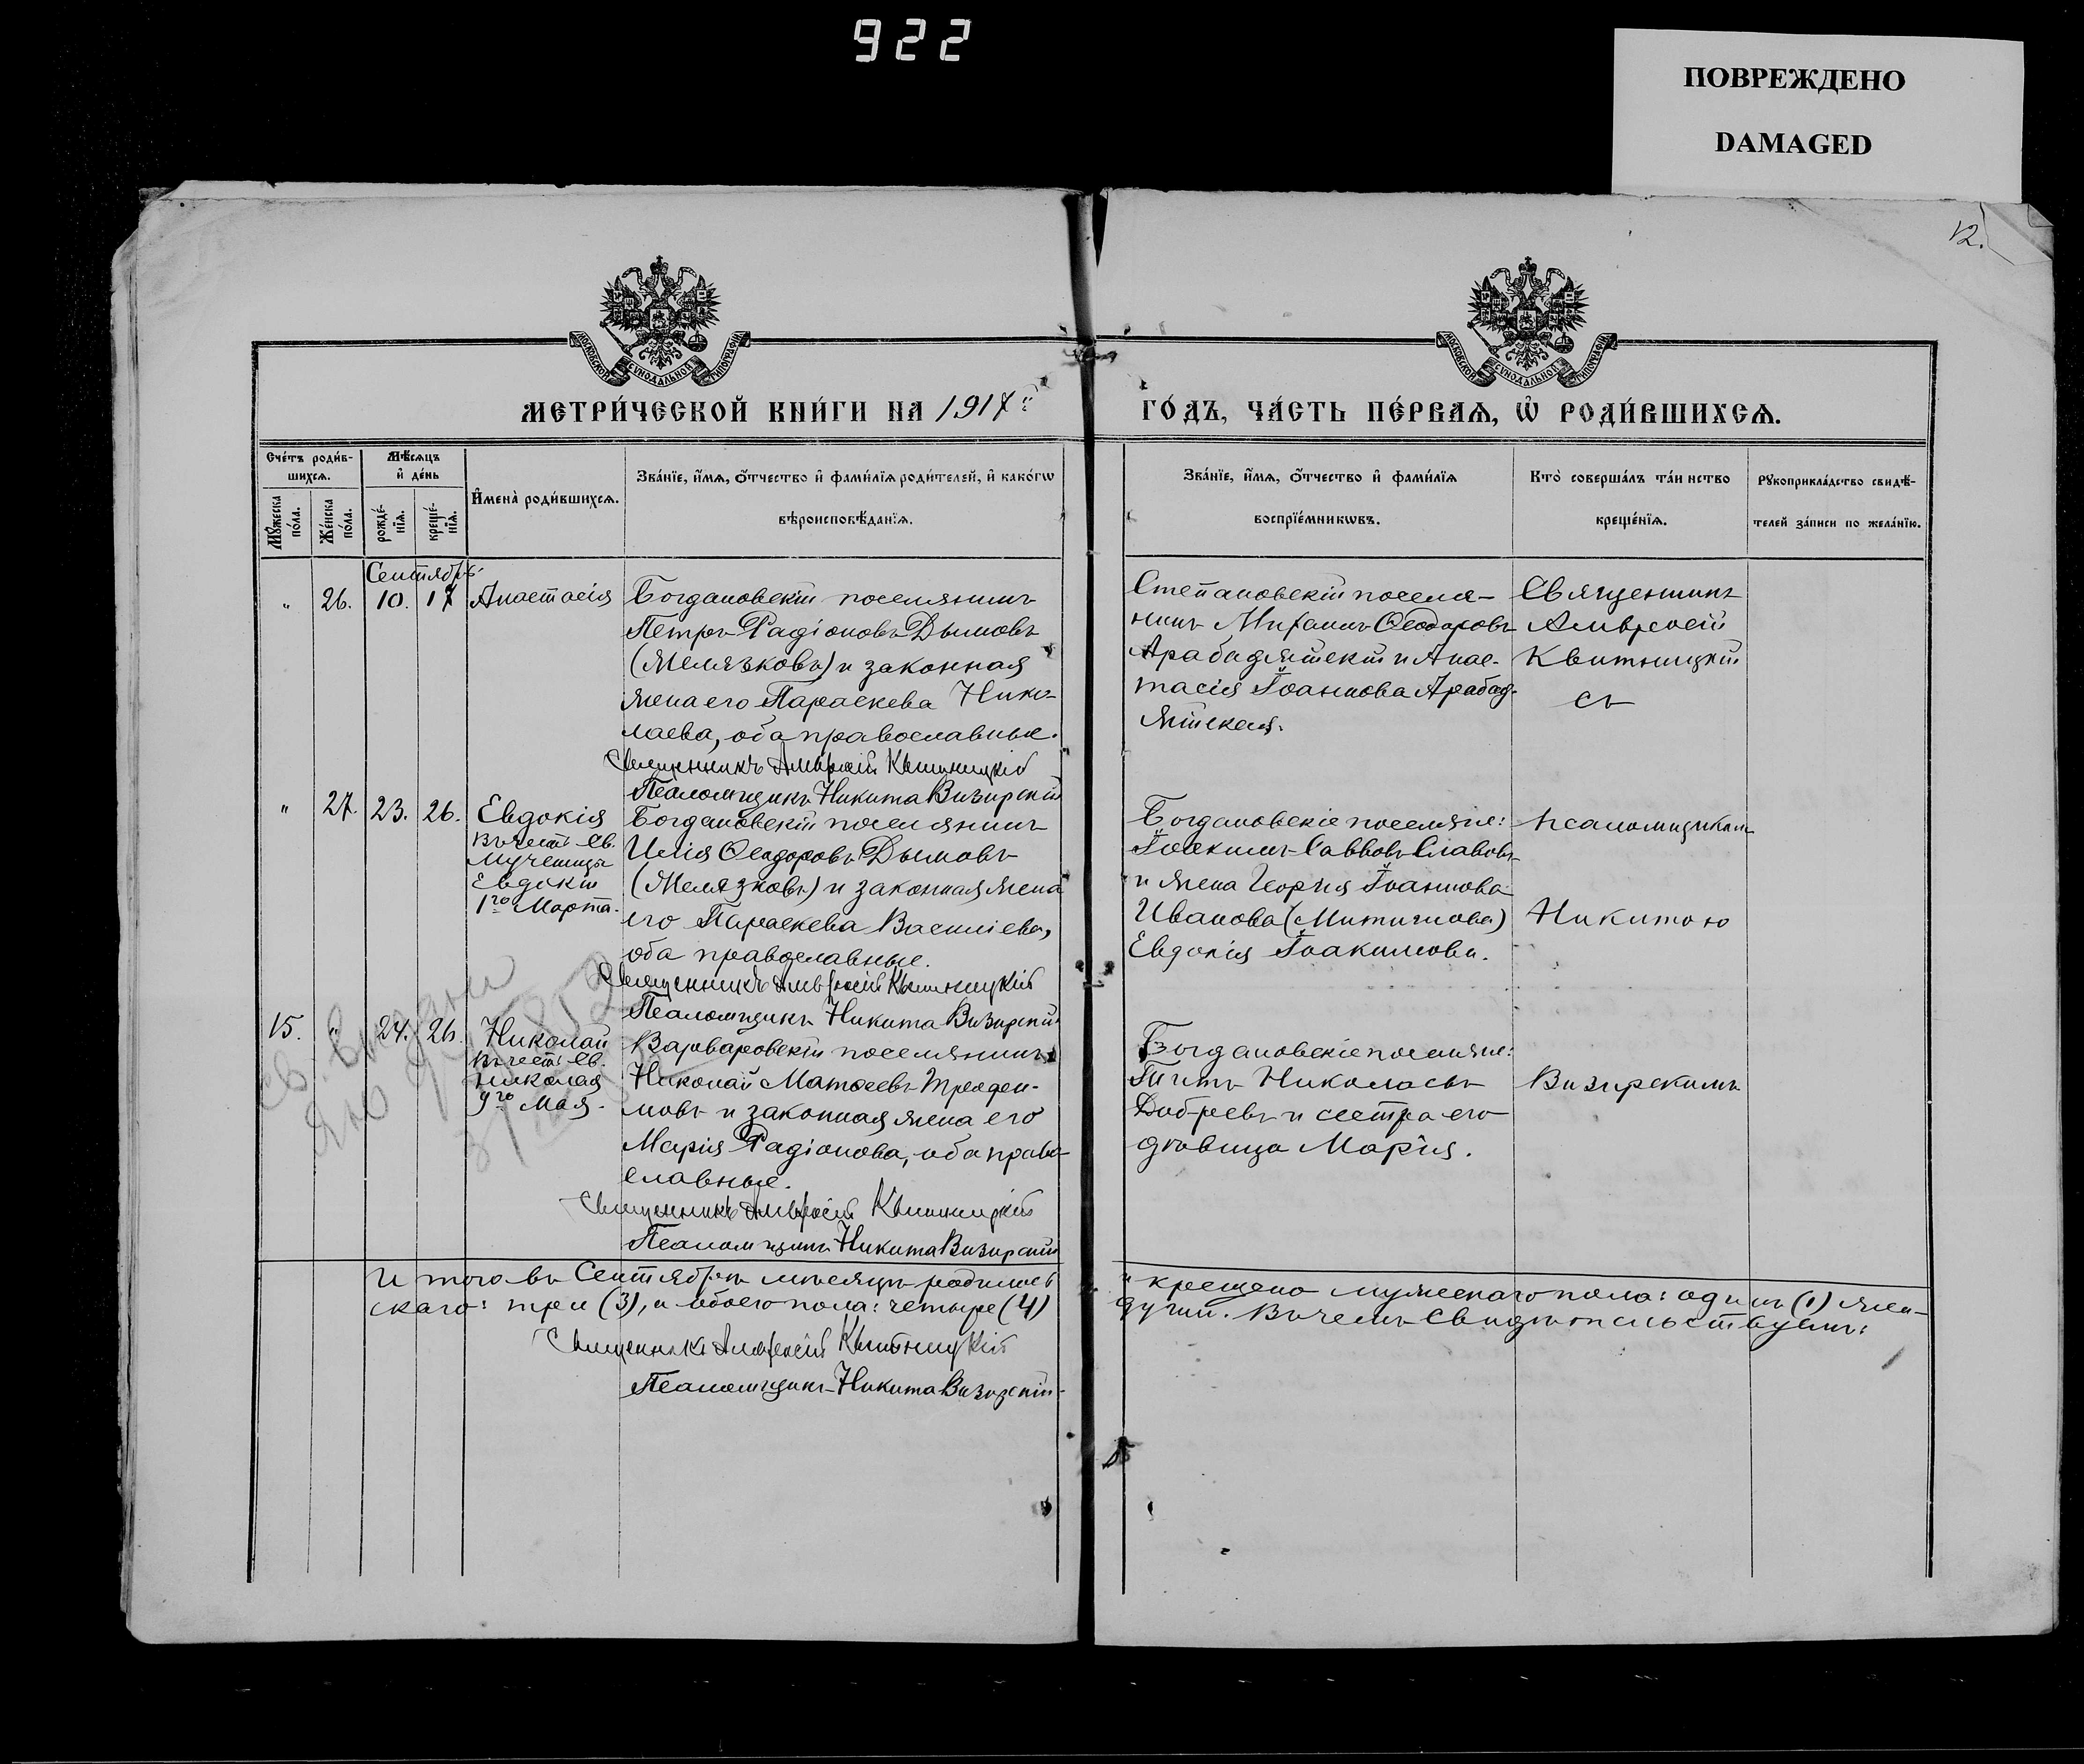 922
ПОВРЕЖДЕНО
DAMAGED
12.
МОСКОВСКОЙ СѴНОДАЛЬНОЙ ТИПОГРАФІИ
МОСКОВСКОЙ СѴНОДАЛЬНОЙ ТИПОГРАФІИ
МЕТРИ́ЧЕСКОЙ КНИ́ГИ НА 1917й
ГО́ДЪ, ЧА́СТЬ ПЕ́РВАѦ, Ѡ҆ РОДИ́ВШИХСѦ.
Сче́тъ роди́в-
шихсѧ.
Мꙋжеска
по́ла.
Же́нска
по́ла.
Мѣ́сѧцъ
и҆ де́нь
рожде́-
нїѧ.
креще́-
нїѧ.
И҆мена̀ роди́вшихсѧ.
Зва́нїе, и҆́мѧ, ѻ҆́тчество и҆ фами́лїѧ роди́телей, и҆ како́гѡ
вѣроисповѣ́данїѧ.
Зва́нїе, и҆́мѧ, ѻ҆́тчество и҆ фами́лїѧ
воспрїе́мникѡвъ.
Кто̀ соверша́лъ та́инство
креще́нїѧ.
Рꙋкоприкла́дство свидѣ́-
телей за́писи по жела́нїю.
Сентябрь
" 26. 10. 17 Анастасія
Богдановскій поселянинъ
Петръ Радіоновъ Дымовъ
(Мелязковъ) и законная
жена его Параскева Нико-
лаева, оба православные.
Священникъ Амвросій Квитницкій
Псаломщикъ Никита Визирскій
Степановскій поселя-
нинъ Мираилъ Ѳеодоровъ
Арабаджійскій и Анас-
тасія Іоаннова Арабад-
жійская.
Священникъ
Амвросій
Квитницкій
съ
" 27. 23. 26. Евдокія
въ честь св.
мученицы
Евдокіи
1го Марта.
Богдановскій поселянинъ
Илія Ѳеодоровъ Дымовъ
(Мелязковъ) и законная жена
его Параскева Василіева,
оба православные.
Священникъ Амвросій Квитницкій
Псаломщикъ Никита Визирскій
Богдановскіе поселяне:
Іоакимъ Савовъ Славовъ
и жена Георгія Іоаннова
Иванова (Митичнова)
Евдокія Іоакимова.
псаломщикомъ
Никитою
15. " 24. 26. Николай
въ честь св.
Николая
9го Мая.
Варваровскій поселянинъ
Николай Матѳеевъ Тренден-
ловъ и законная жена его
Марія Радіонова, оба право-
славные.
Священникъ Амвросій Квитницкій
Псаломщикъ Никита Визирскій
Богдановскіе поселяне:
Титъ Николаевъ
Добревъ и сестра его
дѣвица Марія.
Визирскимъ
Итого въ Сентябрѣ мѣсяцѣ родилось
и крещено мужескаго пола: одинъ (1) жен-
скаго: три (3), а обоего пола: четыре (4)
души. Въ чемъ свидѣтельствуемъ:
Священникъ Амвросій Квитницкій
Псаломщикъ Никита Визирскій